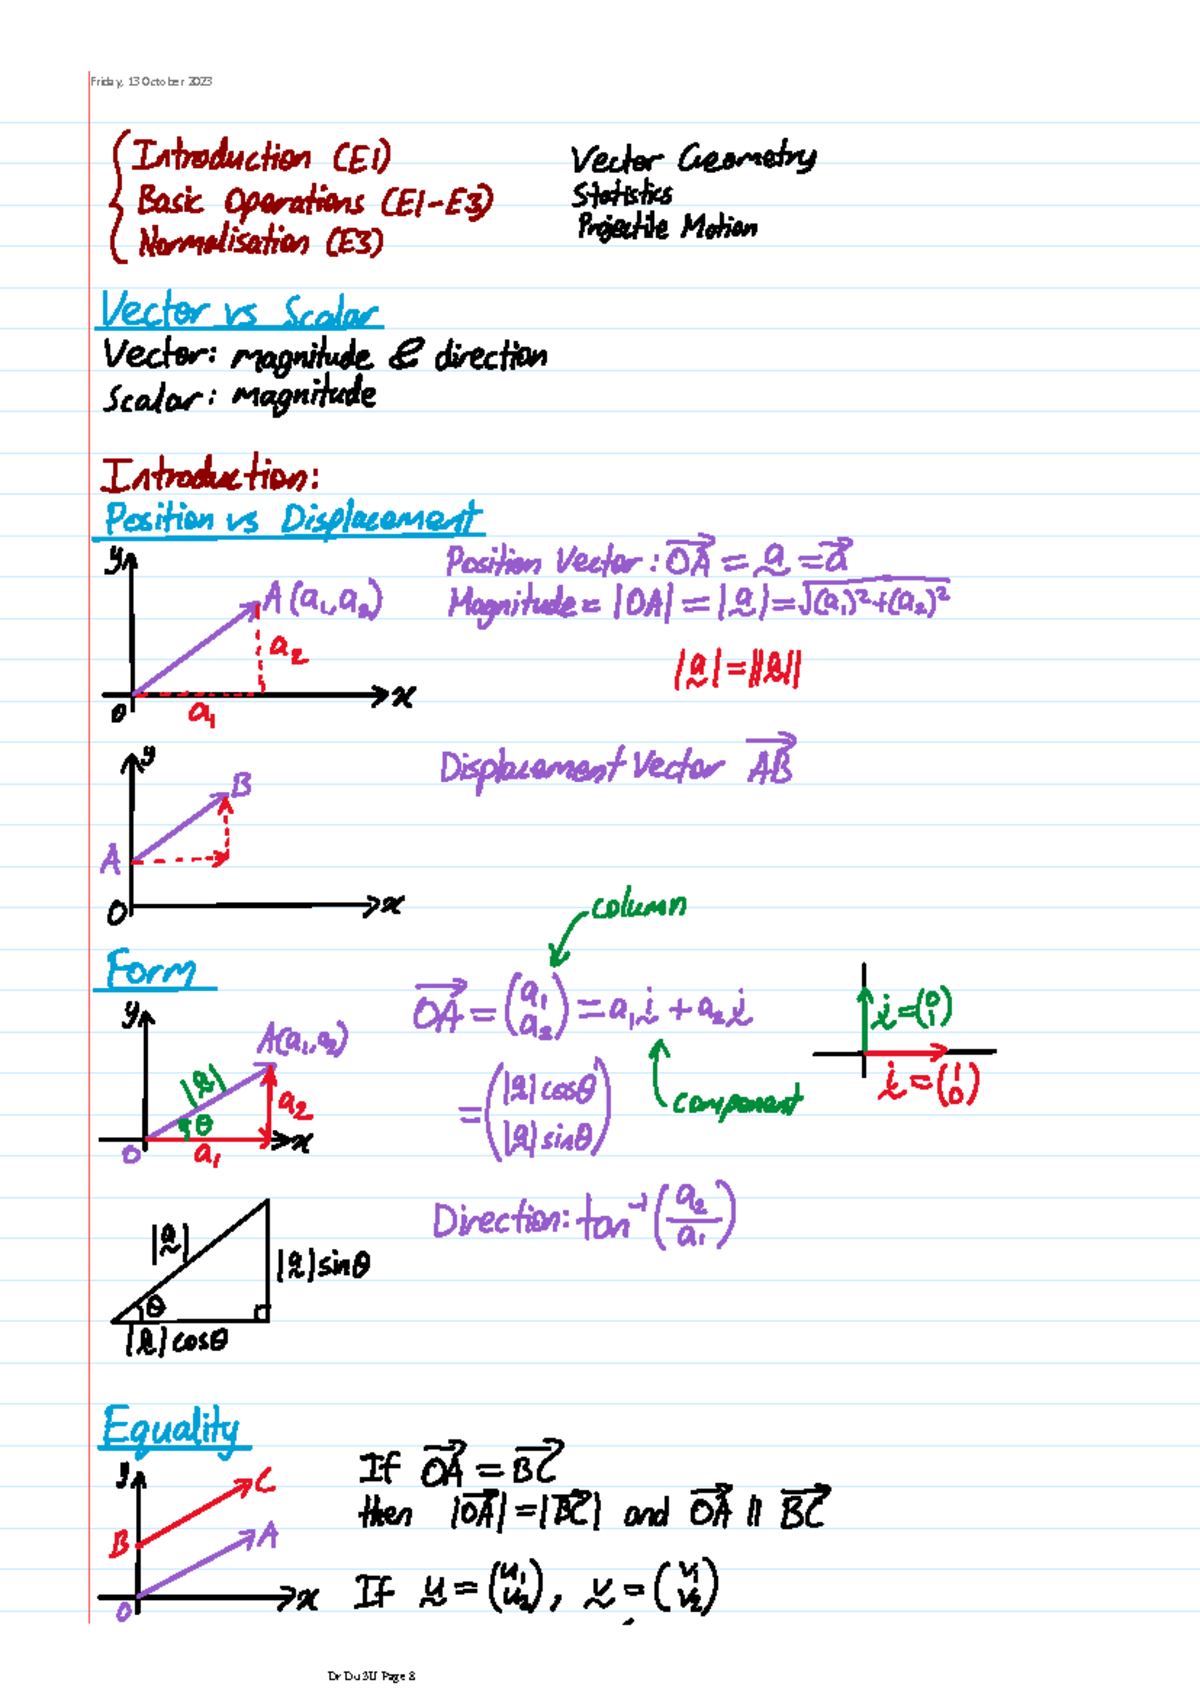 Friday, 13 October 2023
Introduction (E1)
Basic Operations (E1-E3)
Normalisation (E3)
Vector Geometry
Statistics
Projectile Motion
Vector vs Scalar
Vector: magnitude & direction
Scalar: magnitude
Introduction:
Position vs Displacement
y
A (a₁, a₂)
a₂
a₁
O
x
Position Vector: →OA = a̰ = →a
Magnitude = |OA| = |a̰| = √(a₁)²+(a₂)²
|a̰| = ||a̰||
y
B
A
O
x
Displacement Vector →AB
Form
y
A(a₁, a₂)
|a̰|
θ
a₂
a₁
O
x
column
→OA = (a₁ a₂) = a₁ḭ + a₂j̰
component
= (|a̰| cosθ |a̰| sinθ)
j̰ = (0 1)
ḭ = (1 0)
Direction: tan⁻¹(a₂/a₁)
|a̰|
θ
|a̰| sinθ
|a̰| cosθ
Equality
y
C
B
A
O
x
If →OA = →BC
then |→OA| = |→BC| and →OA || →BC
If ṵ = (u₁ u₂), v̰ = (v₁ v₂)
Dr Du 3U Page 8